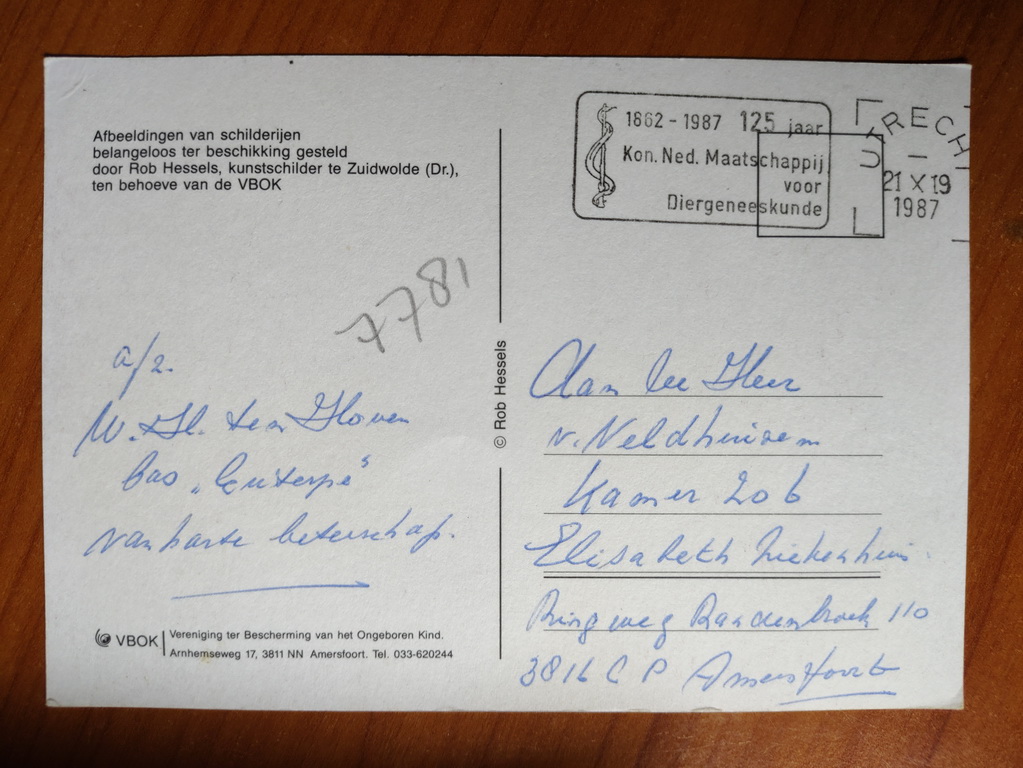 Afbeeldingen van schilderijen
belangeloos ter beschikking gesteld
door Rob Hessels, kunstschilder te Zuidwolde (Dr.),
ten behoeve van de VBOK
1862 - 1987 125 jaar
Kon. Ned. Maatschappij
voor
Diergeneeskunde
UTRECHT
21 X 19
1987
7781
a/z.
W. H. ten Hoven
bas „Euterpe"
van harte beterschap.
© Rob Hessels
Aan de Heer
v. Veldhuizen
Kamer 206
Elisabeth Ziekenhuis.
Ringweg Randenbroek 110
3816 CP Amersfoort
VBOK
Vereniging ter Bescherming van het Ongeboren Kind.
Arnhemseweg 17, 3811 NN Amersfoort. Tel. 033-620244